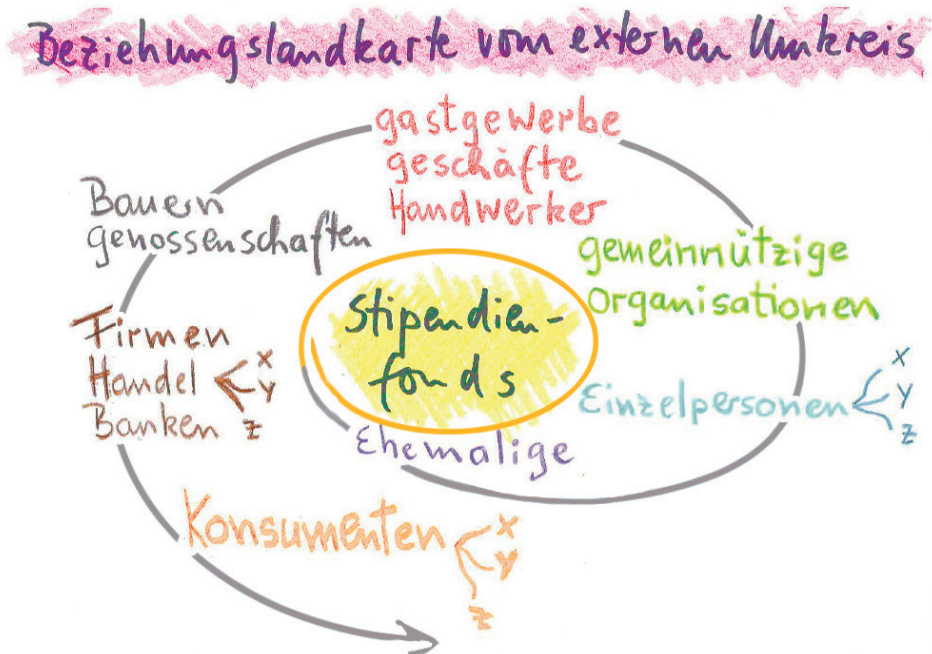 Beziehungslandkarte vom externen Umkreis
gastgewerbe
geschäfte
Handwerker
Bauern
genossenschaften
gemeinnützige
organisationen
Stipendien-
fonds
Firmen
Handel
Banken
x
y
z
Einzelpersonen
x
y
z
Ehemalige
Konsumenten
x
y
z